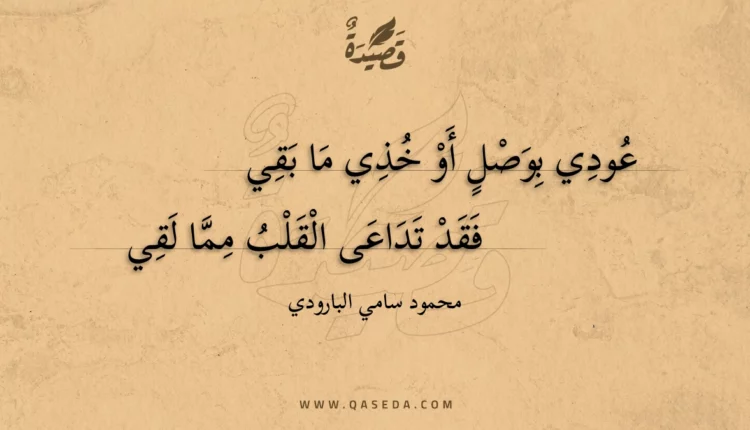 قَصِيدَةٌ
عُودِي بِوَصْلٍ أَوْ خُذِي مَا بَقِي
فَقَدْ تَدَاعَى الْقَلْبُ مِمَّا لَقِي
محمود سامي البارودي
WWW.QASEDA.COM